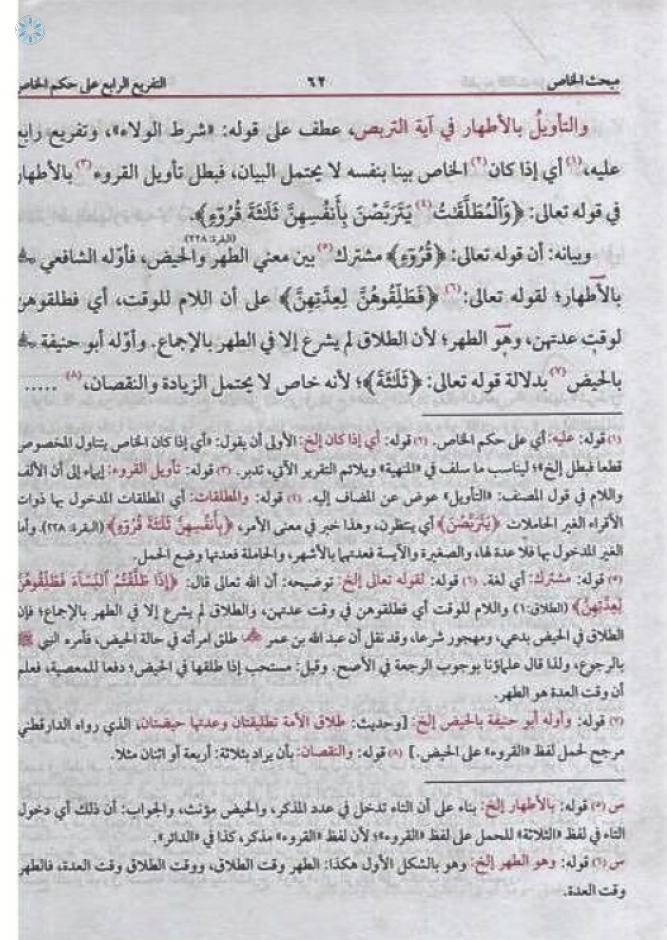 مبحث الخاص ٦٢ التفريع الرابع على حكم الخاص
والتأويلُ بالأطهار في آية التربص، عطف على قوله: «شرط الولاء»، وتفريع رابع
عليه،(١) أي إذا كان(٢) الخاص بينا بنفسه لا يحتمل البيان، فبطل تأويل القروء(٣) بالأطهار
في قوله تعالى: ﴿وَالْمُطَلَّقَاتُ(٤) يَتَرَبَّصْنَ بِأَنْفُسِهِنَّ ثَلَاثَةَ قُرُوءٍ﴾.
(البقرة: ٢٢٨)
وبيانه: أن قوله تعالى: ﴿قُرُوءٍ﴾ مشترك(٥) بين معنى الطهر والحيض، فأوّله الشافعي
بالأطهار؛ لقوله تعالى:(٦) ﴿فَطَلِّقُوهُنَّ لِعِدَّتِهِنَّ﴾ على أن اللام للوقت، أي فطلقوهن
لوقت عدتهن، وهو الطهر؛ لأن الطلاق لم يشرع إلا في الطهر بالإجماع. وأوّله أبو حنيفة
بالحيض(٧) بدلالة قوله تعالى: ﴿ثَلَاثَةَ﴾؛ لأنه خاص لا يحتمل الزيادة والنقصان،(٨) .....
(١) قوله: عليه: أي على حكم الخاص. (٢) قوله: أي إذا كان إلخ: الأولى أن يقول: «أي إذا كان الخاص يتناول المخصوص
قطعا فبطل إلخ»؛ ليناسب ما سلف في «المنهية» ويلائم التقرير الآتي، تدبر. (٣) قوله: تأويل القروء: إيماء إلى أن الألف
واللام في قول المصنف: «التأويل» عوض عن المضاف إليه. (٤) قوله: والمطلقات: أي المطلقات المدخول بها ذوات
الأقراء الغير الحاملات ﴿يَتَرَبَّصْنَ﴾ أي ينتظرن، وهذا خبر في معنى الأمر، ﴿بِأَنْفُسِهِنَّ ثَلَاثَةَ قُرُوءٍ﴾ (البقرة: ٢٢٨). وأما
الغير المدخول بها فلا عدة لها، والصغيرة والآيسة فعدتهما بالأشهر، والحاملة فعدتها وضع الحمل.
(٥) قوله: مشترك: أي لغة. (٦) قوله: لقوله تعالى إلخ: توضيحه: أن الله تعالى قال: ﴿إِذَا طَلَّقْتُمُ النِّسَاءَ فَطَلِّقُوهُنَّ
لِعِدَّتِهِنَّ﴾ (الطلاق:١) واللام للوقت أي فطلقوهن في وقت عدتهن، والطلاق لم يشرع إلا في الطهر بالإجماع؛ فإن
الطلاق في الحيض بدعي، ومهجور شرعا، وقد نقل أن عبد الله بن عمر طلق امرأته في حالة الحيض، فأمره النبي ﷺ
بالرجوع، ولذا قال علماؤنا بوجوب الرجعة في الأصح. وقيل: مستحب إذا طلقها في الحيض؛ دفعا للمعصية، فعلم
أن وقت العدة هو الطهر.
(٧) قوله: وأوله أبو حنيفة بالحيض إلخ: [وحديث: طلاق الأمة تطليقتان وعدتها حيضتان، الذي رواه الدارقطني
مرجح لحمل لفظ «القروء» على الحيض.] (٨) قوله: والنقصان: بأن يراد بثلاثة: أربعة أو اثنان مثلا.
س (٥) قوله: بالأطهار إلخ: بناء على أن التاء تدخل في عدد المذكر، والحيض مؤنث، والجواب: أن ذلك أي دخول
التاء في لفظ «الثلاثة» للحمل على لفظ «القروء»؛ لأن لفظ «القروء» مذكر، كذا في «الدائر».
س (٦) قوله: وهو الطهر إلخ: وهو بالشكل الأول هكذا: الطهر وقت الطلاق، ووقت الطلاق وقت العدة، فالطهر
وقت العدة.